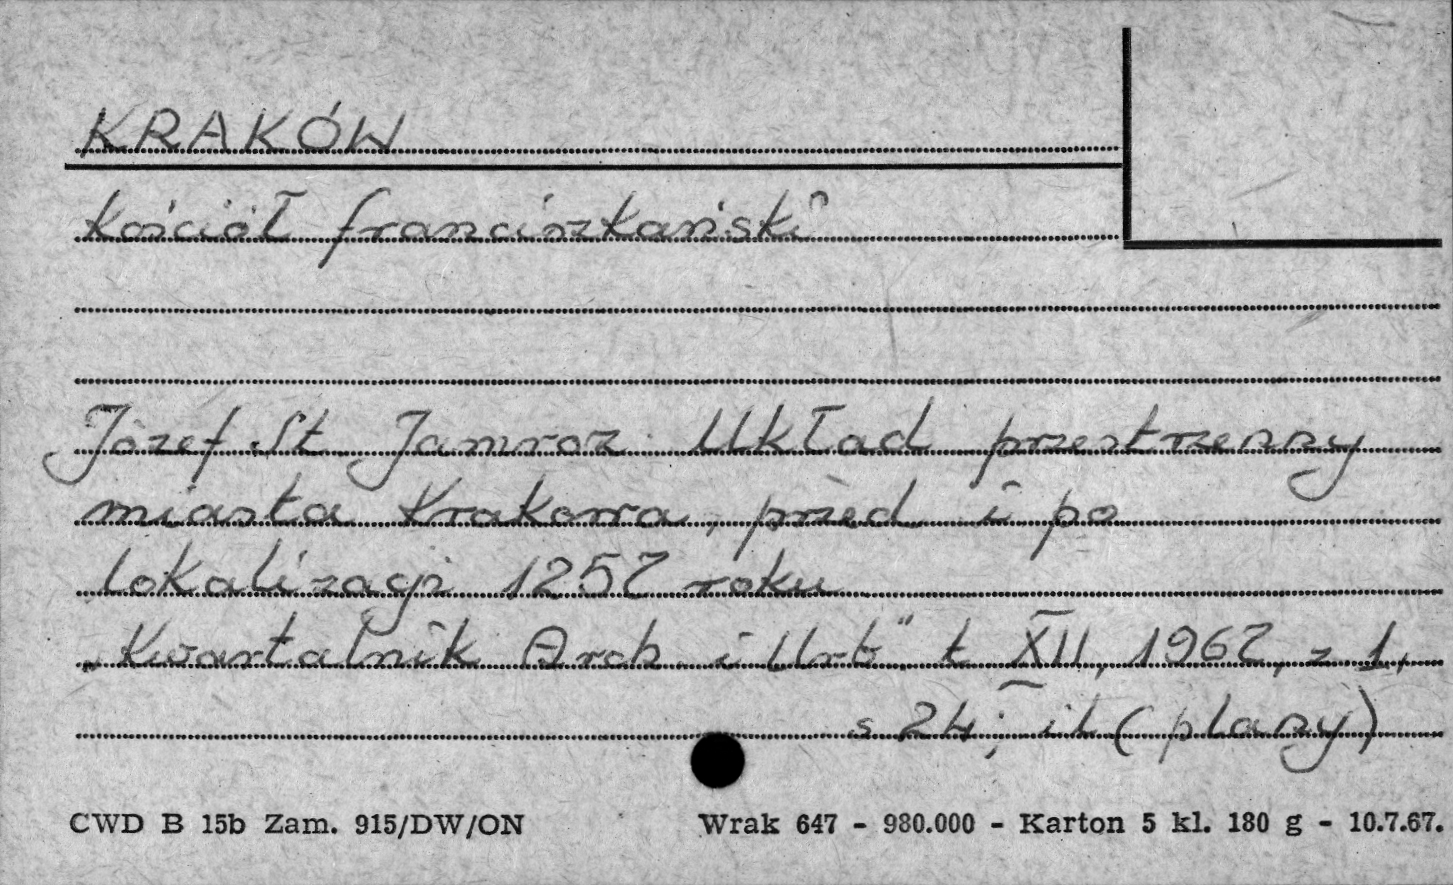 KRAKÓW
kościół franciszkański
Józef St. Jamroz Układ przestrzenny
miasta Krakowa, przed i po
lokalizacji 1257 roku
„Kwartalnik Arch. i Urb" t XII, 1967, z 1,
s 24; il (plany)
CWD B 15b Zam. 915/DW/ON Wrak 647 - 980.000 - Karton 5 kl. 180 g - 10.7.67.